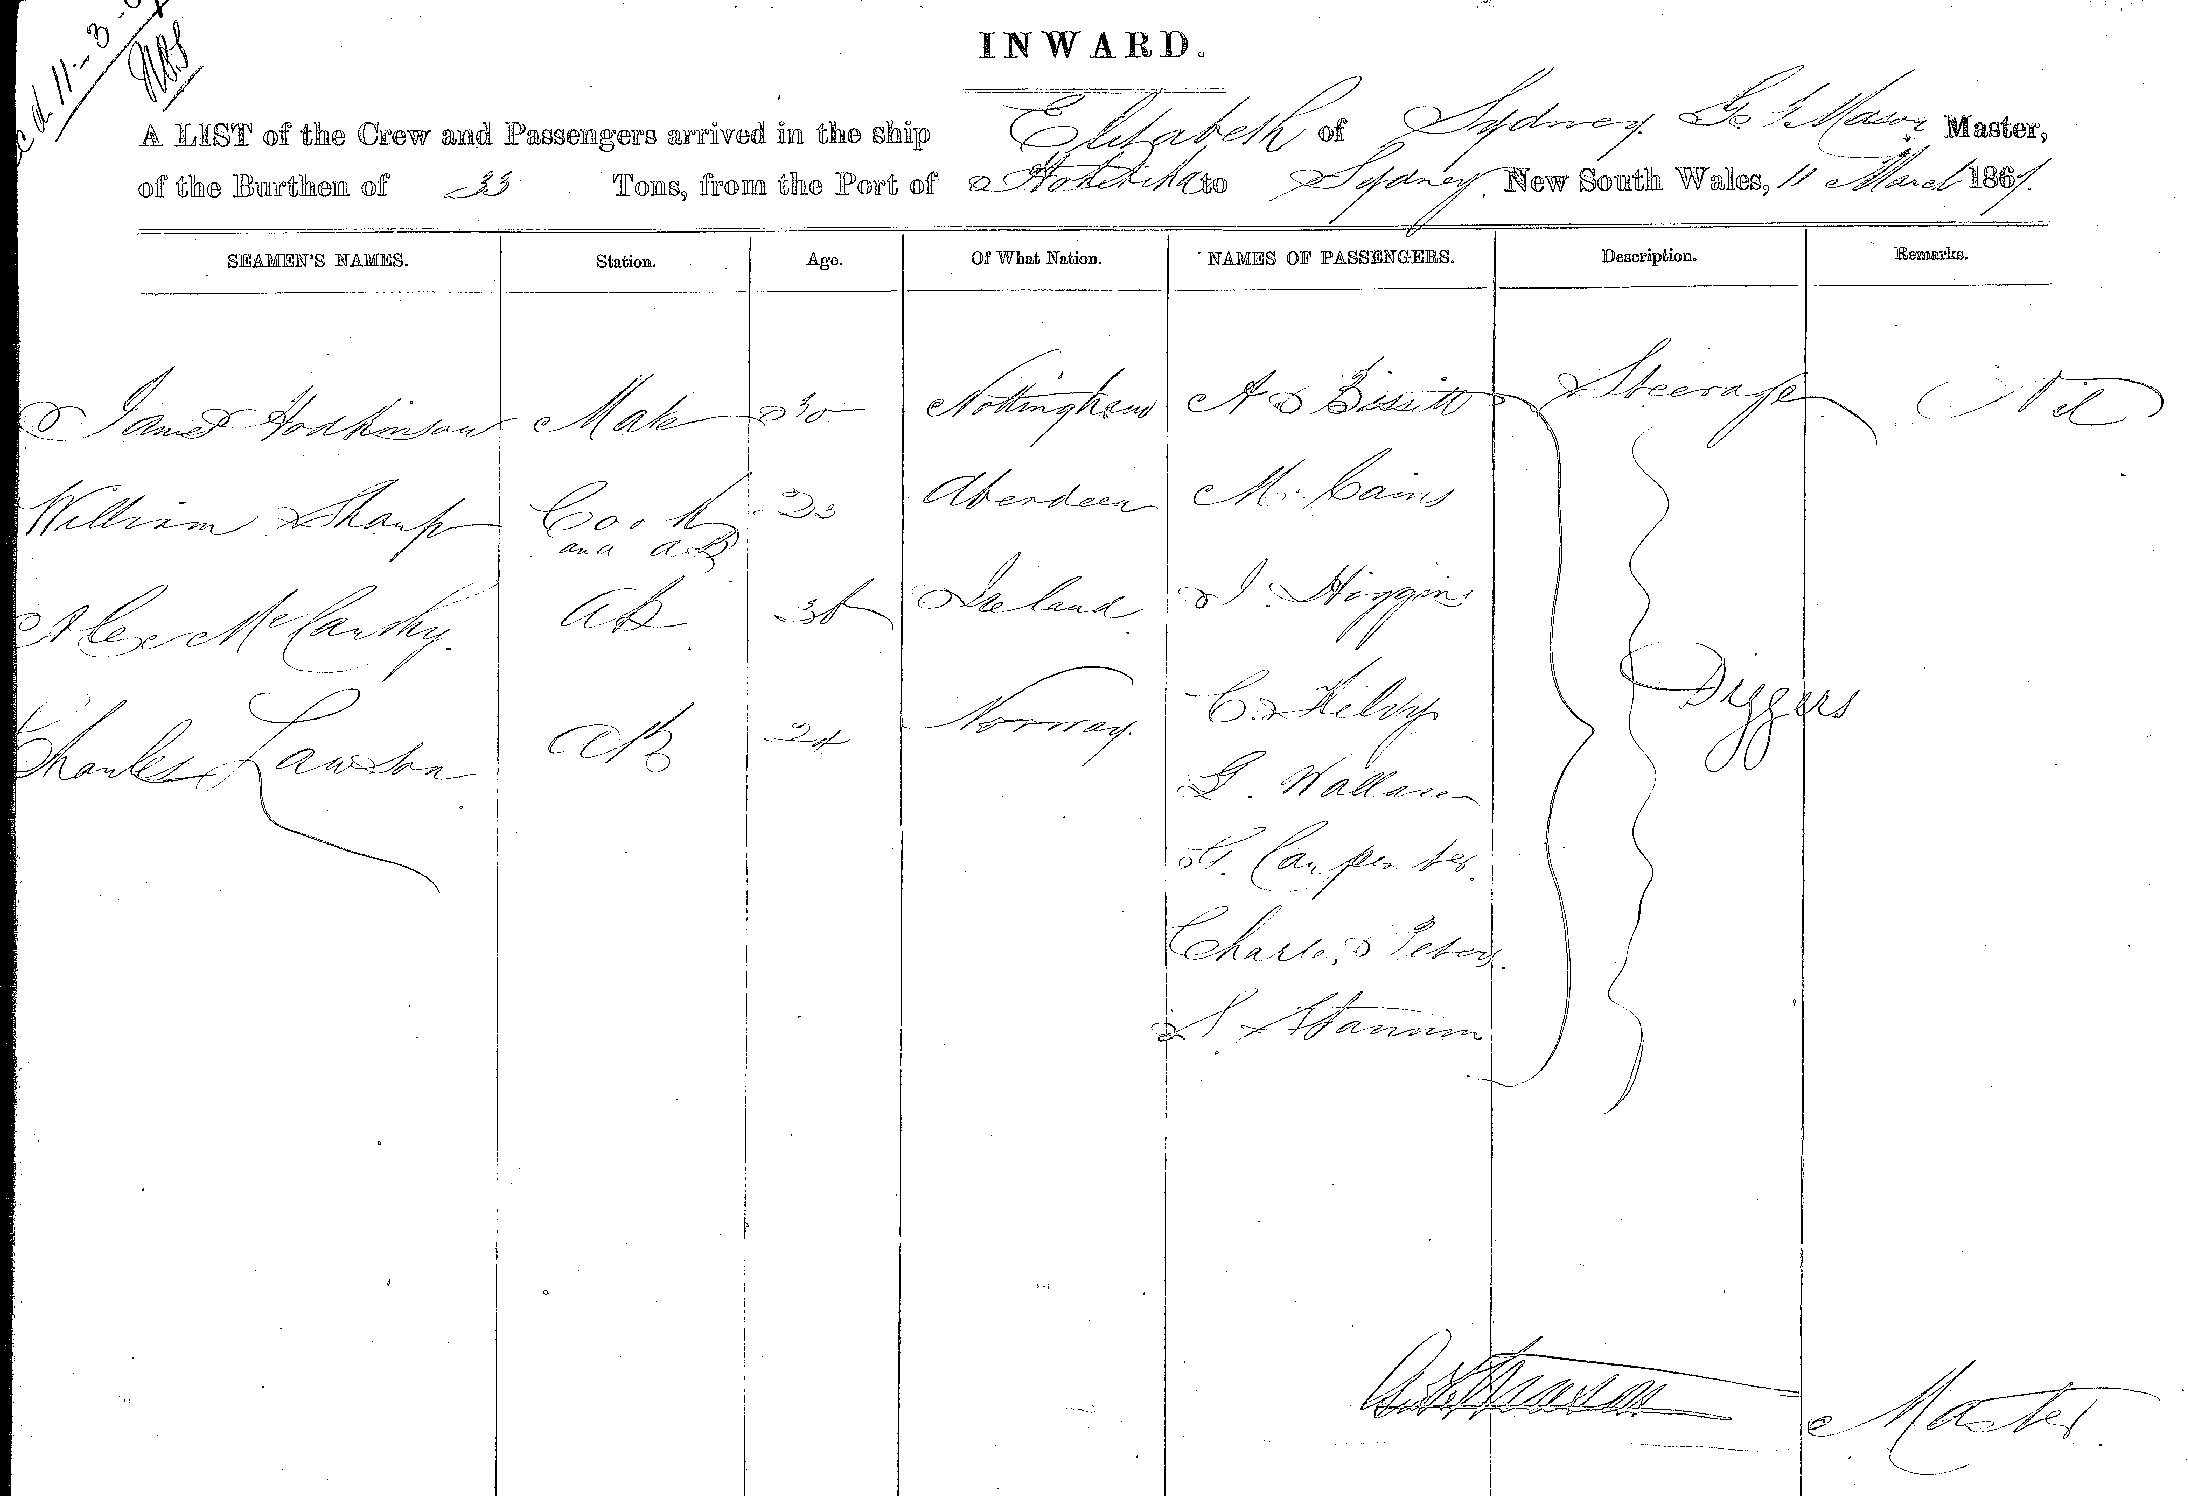 11-3-
INWARD.
A LIST of the Crew and Passengers arrived in the ship Elizabeth of Sydney. Mason Master,
of the Burthen of 33 Tons, from the Port of Hokitika to Sydney New South Wales, 11 March 1867.
SEAMEN'S NAMES. Station. Age. Of What Nation. NAMES OF PASSENGERS. Description. Remarks.
James Hodkinson Mate 30 Nottingham A Bissitt Steerage Nil
William Sharp Cook 23 Aberdeen M. Cains
and AB
Alex McCausky. AB 36 Ireland J. Higgins
Diggers
Charles Lawson AB 24 Norway. C. Kelvy
G. Wallace
G. Carpenter.
Charles Peters.
S. Stannim
Master